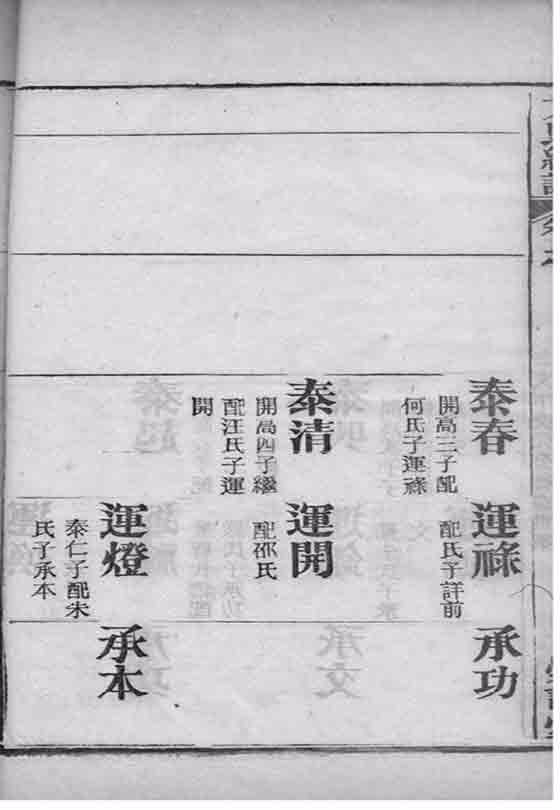 泰春
開高三子配
何氏子運祿
運祿
配氏子詳前
承功
泰清
開高四子繼
配汪氏子運
開
運開
配邵氏
運燈
泰仁子配朱
氏子承本
承本